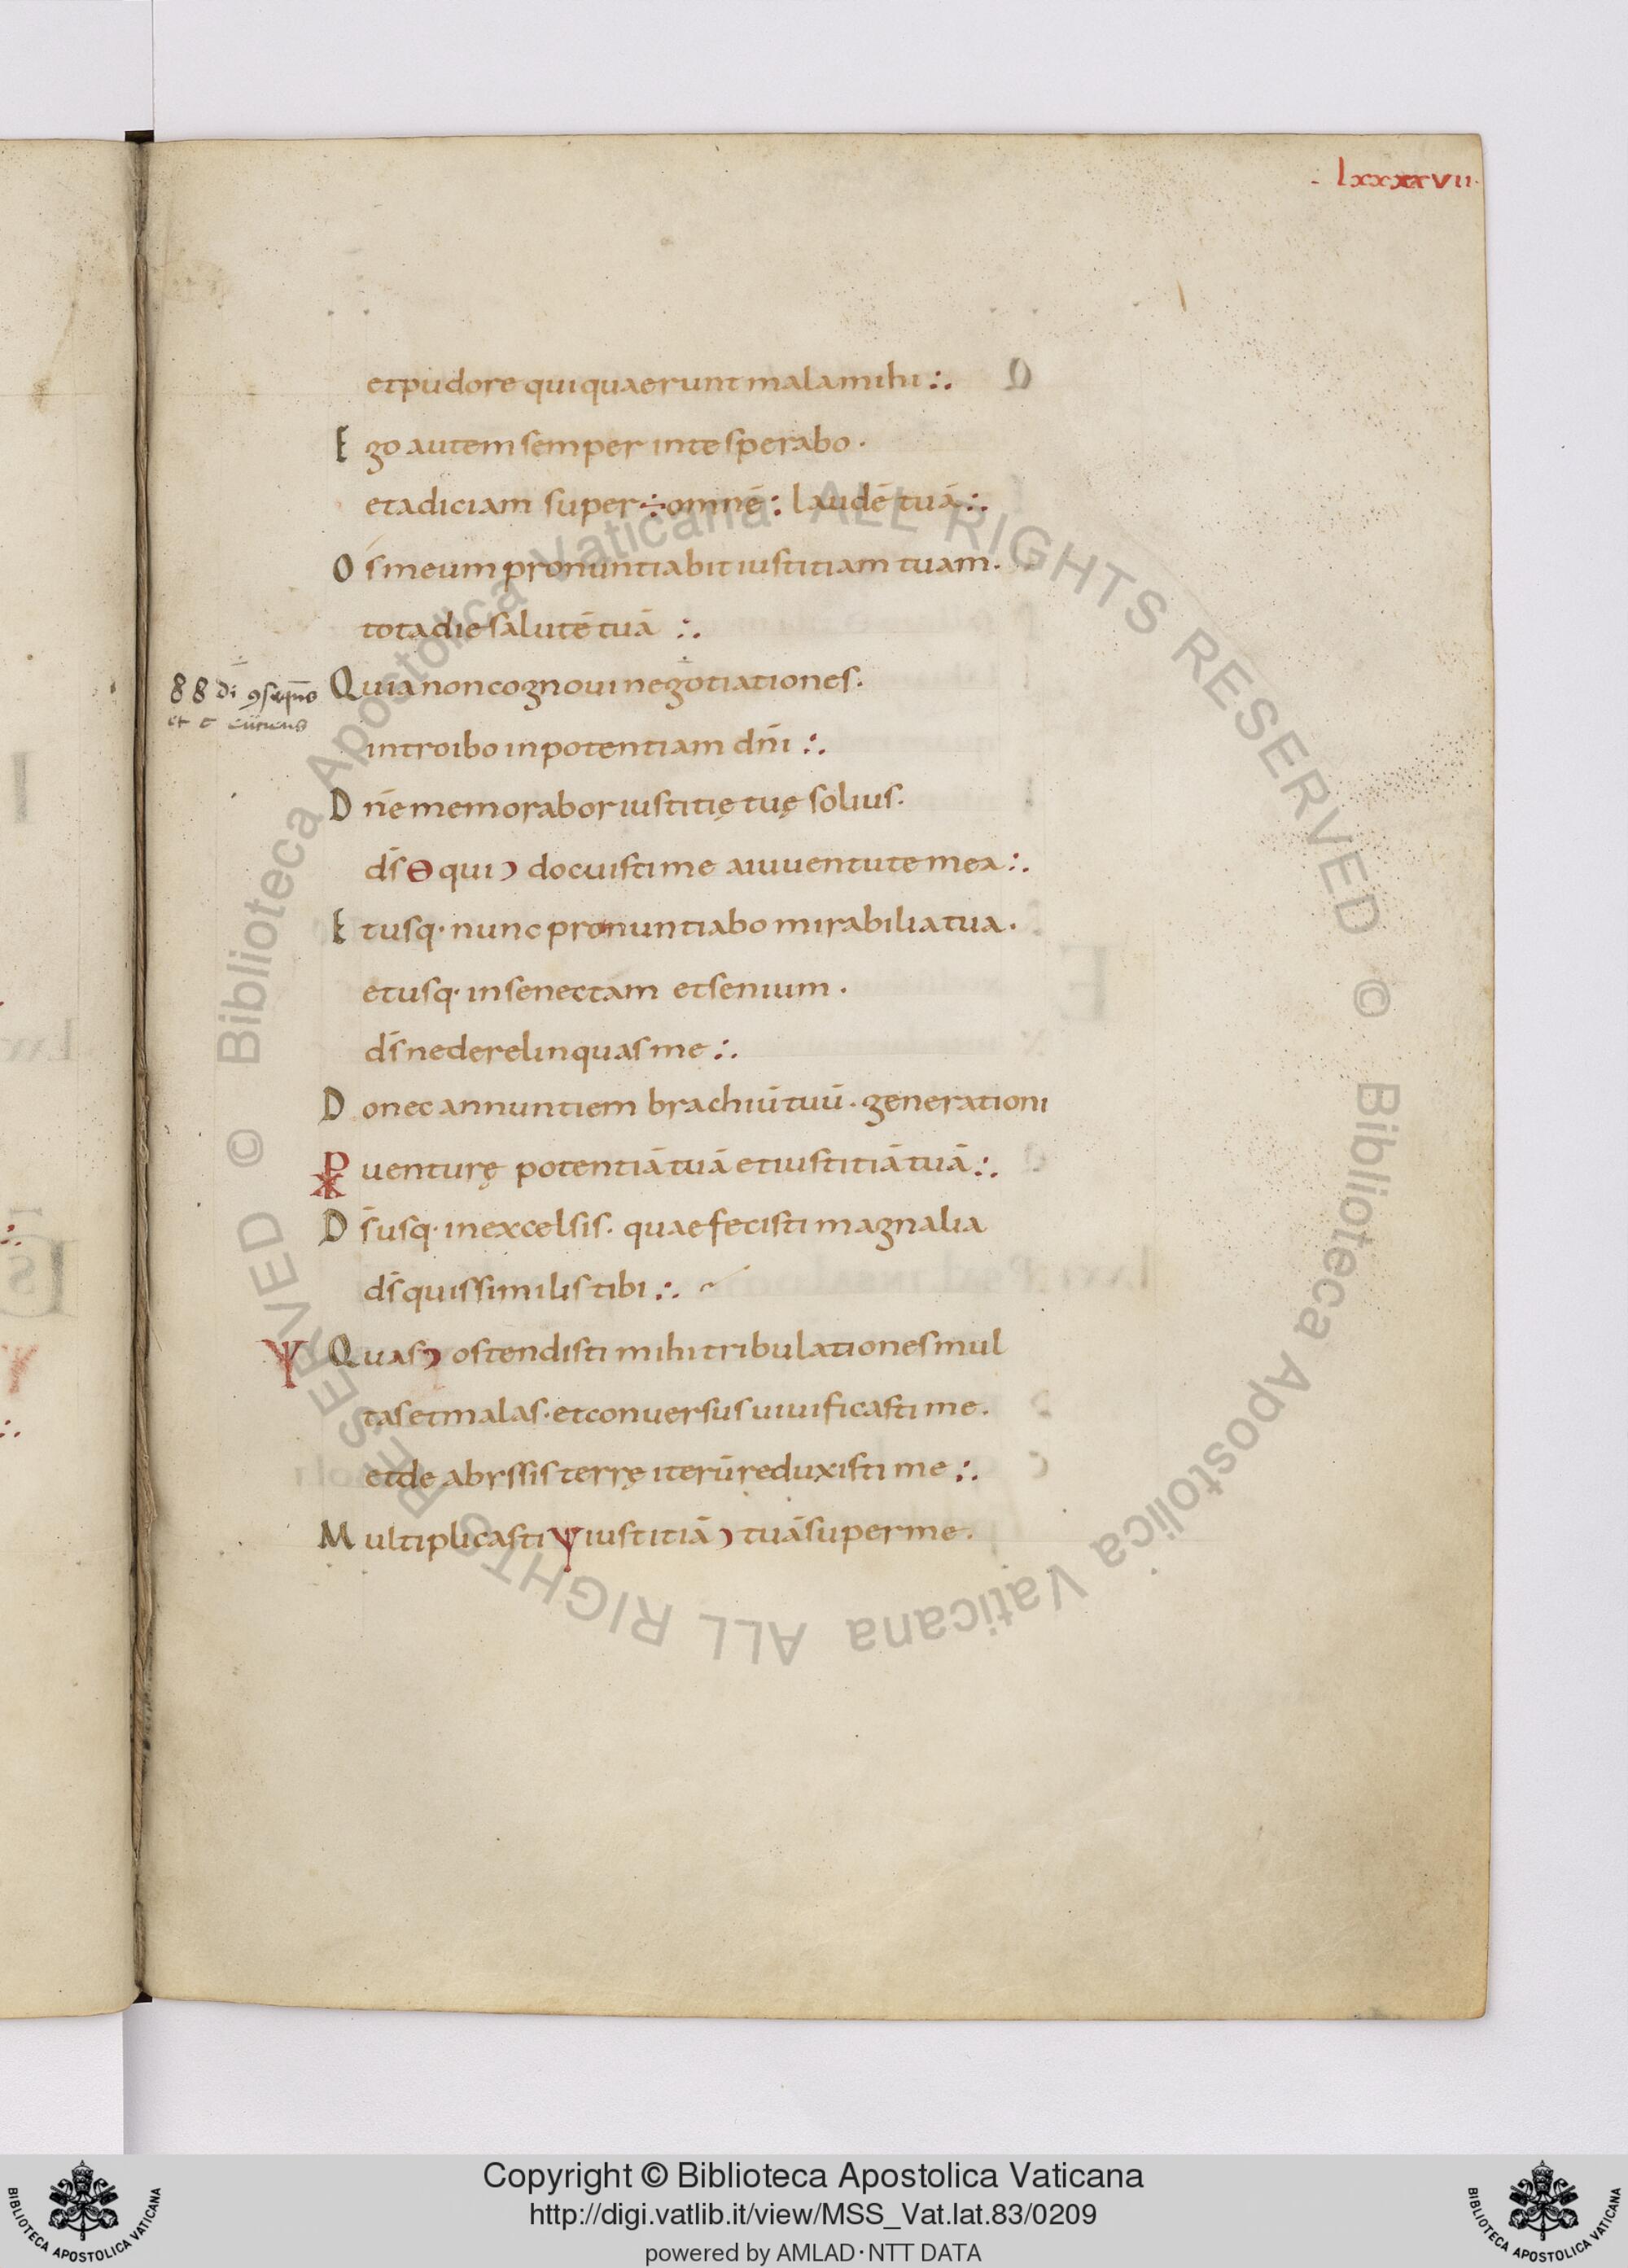 · lxxxxvii·
et pudore qui quaerunt mala mihi ∴
Ego autem semper in te sperabo ·
et adiciam super ÷ omnē : laudē tuā ∴
Os meum pronuntiabit iustitiam tuam ·
tota die salutē tuā ∴
Quia non cognoui negotiationes ·
88 di
introibo in potentiam dn̄i ∴
Dn̄e memorabor iustitię tuę solius ·
ds̄ Θ qui ɔ docuisti me a iuuentute mea ∴
Et usq· nunc pronuntiabo mirabilia tua ·
et usq· in senectam et senium ·
ds̄ ne derelinquas me ∴
Donec annuntiem brachiū tuū · generationi
⳩ uenturę potentiā tuā et iustitiā tuā ∴
Ds̄ usq· in excelsis · quae fecisti magnalia
ds̄ quis similis tibi ∴
Ψ Quas ɔ ostendisti mihi tribulationes mul
tas et malas · et conuersus uiuificasti me ·
et de abyssis terrę iterū reduxisti me ∴
Multiplicasti Ψ iustitiā ɔ tuā super me ·
© Biblioteca Apostolica Vaticana ALL RIGHTS RESERVED © Biblioteca Apostolica Vaticana ALL RIGHTS RESERVED
Copyright © Biblioteca Apostolica Vaticana
http://digi.vatlib.it/view/MSS_Vat.lat.83/0209
powered by AMLAD·NTT DATA
BIBLIOTECA APOSTOLICA VATICANA
BIBLIOTECA APOSTOLICA VATICANA